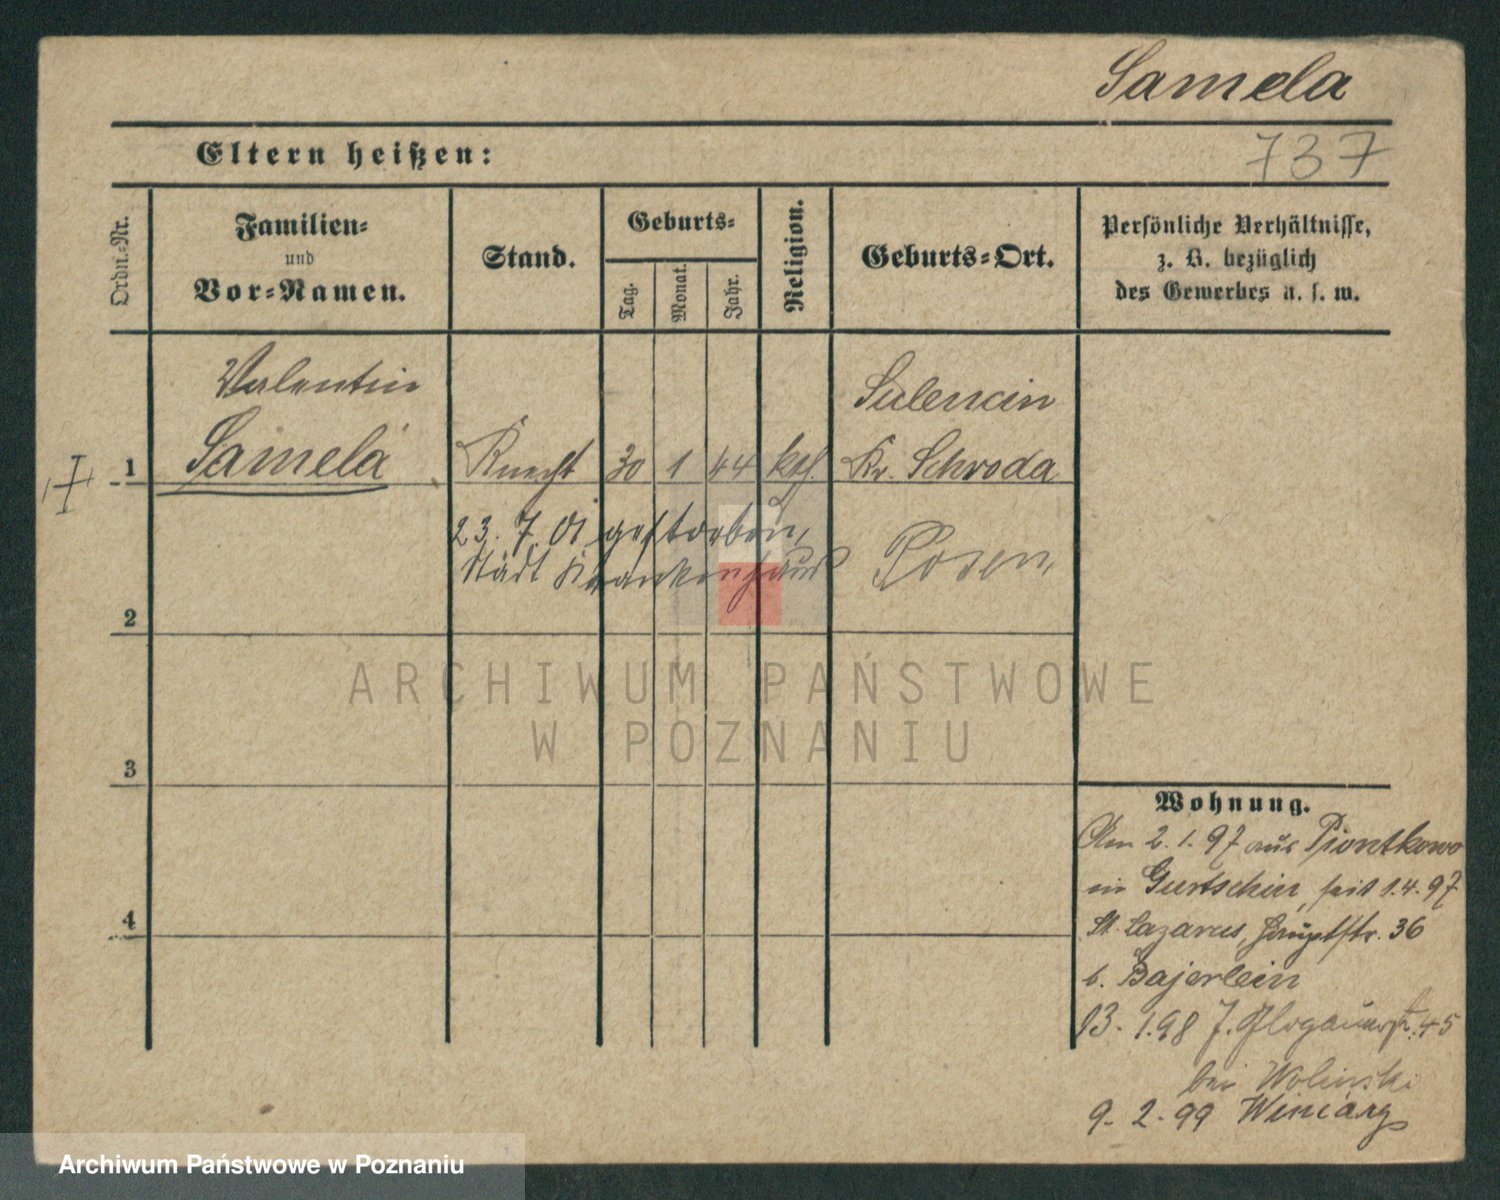 Samela
Eltern heißen:
737
Ordn.-Nr.
Familien-
und
Vor-Namen.
Stand.
Geburts-
Tag.
Monat.
Jahr.
Religion.
Geburts-Ort.
Persönliche Verhältnisse,
z. B. bezüglich
des Gewerbes u. s. w.
Valentin
Samela
Sulencin
1
Knecht 30 1 44 kth. Kr. Schroda
23. 7. 01 gestorben,
Städt Krankenhaus
Posen,
2
3
4
ARCHIWUM PAŃSTWOWE
W POZNANIU
Wohnung.
Am 2.1.97 aus Piontkowo
in Gurtschin, seit 1.4.97
St. Lazarus, Hauptstr. 36
b. Bajerlein
13. 1.98 J. Glogauerstr. 45
bei Wolinski
9. 2. 99 Winiary
Archiwum Państwowe w Poznaniu